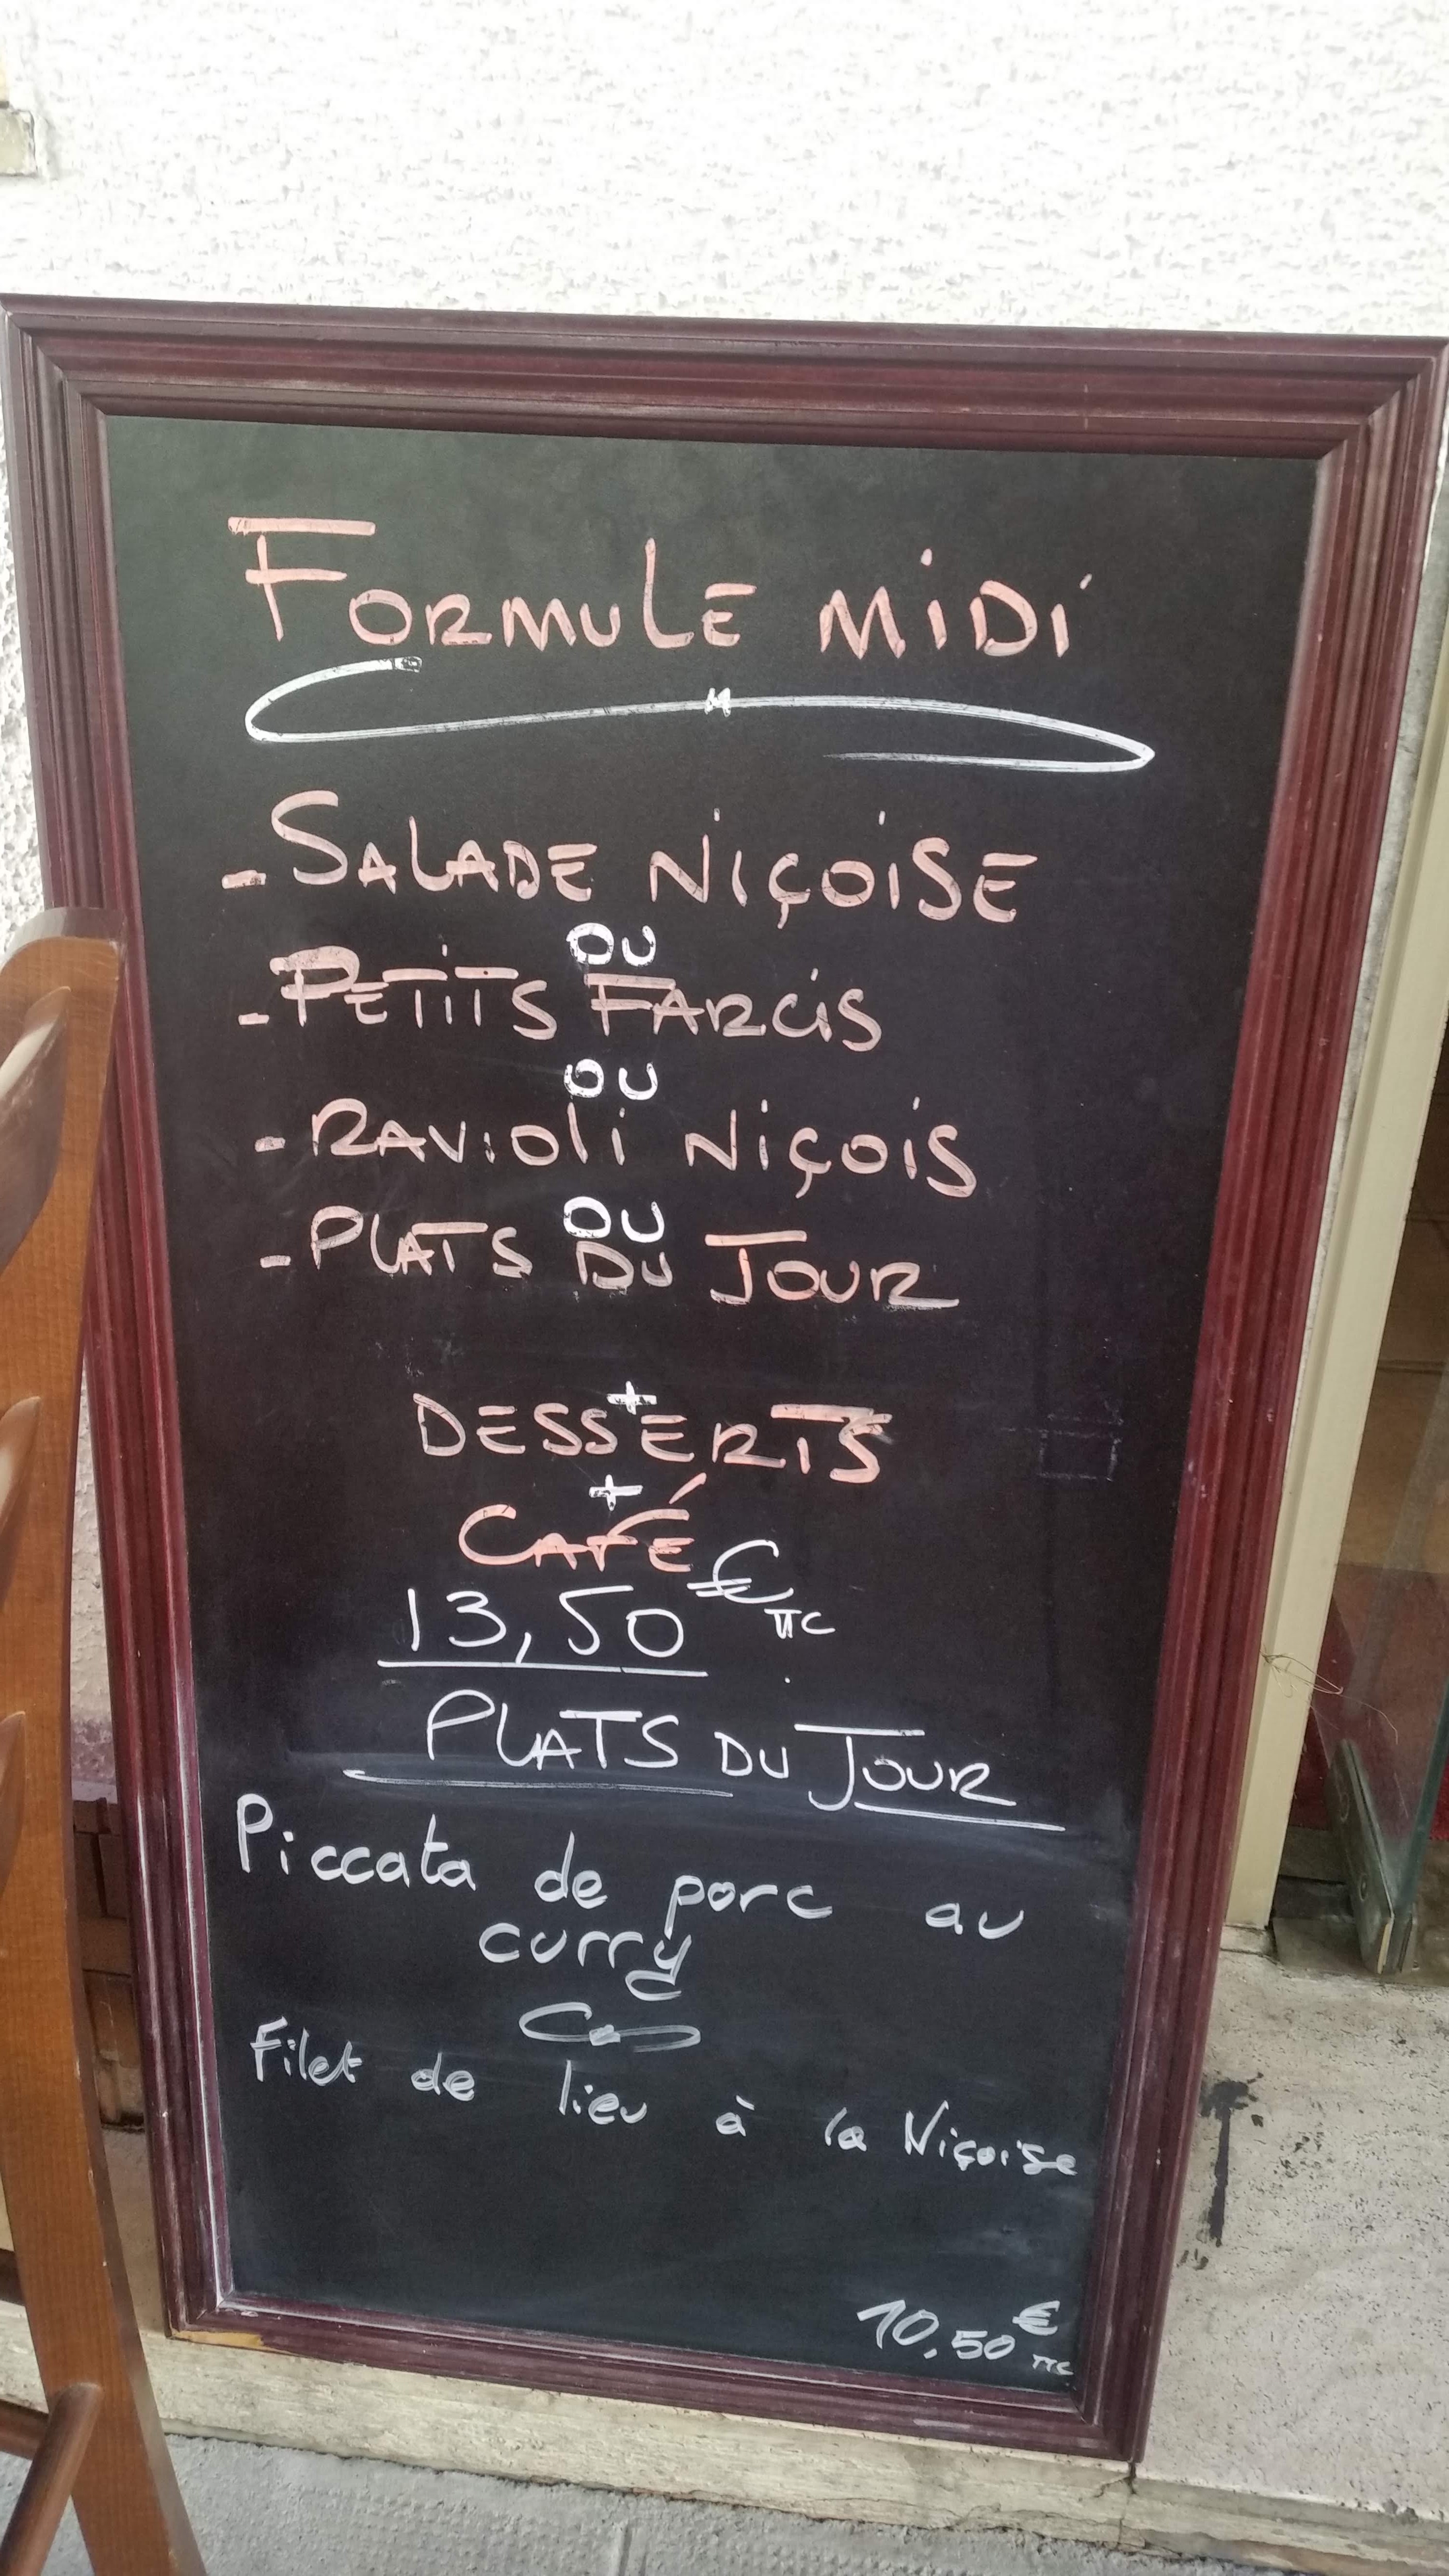 FORMULE MiDi
- SALADE NiÇOiSE
OU
- PETiTS FARCiS
OU
- RAViOli NiÇOiS
OU
- PLATS DU JOUR
+
DESSERTS
+
CAFÉ
13,50 € TTC
PLATS DU JOUR
Piccata de porc au
curry
Filet de lieu à la Niçoise
10,50 € TTC